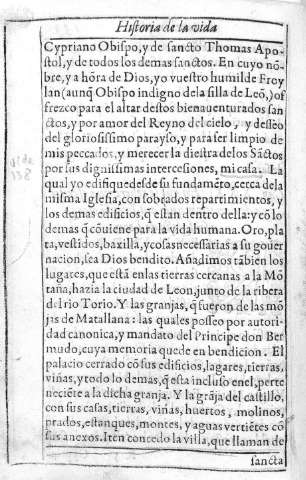 Historia de la vida
Cypriano Obispo, y de sancto Thomas Apo-
stol, y de todos los demas sanctos. En cuyo nõ-
bre, y a hõra de Dios, yo vuestro humilde Froy
lan (aunq̃ Obispo indigno de la silla de Leõ,) of
frezco para el altar destos bienauenturados san
ctos, y por amor del Reyno del cielo, y desseo
del gloriosissimo parayso, y para ser limpio de
mis peccados, y merecer la diestra de los Sãctos
por sus dignissimas intercesiones, mi casa. La
qual yo edifique desde su fundamẽto, cerca de la
misma Iglesia, con sobrados repartimientos, y
los demas edificios, q̃ estan dentro della: y cõ lo
demas q̃ cõuiene para la vida humana. Oro, pla
ta, vestidos, baxilla, y cosas necessarias a su gouer
nacion, sea Dios bendito. Añadimos tãbien los
lugares, que estã en las tierras cercanas a la Mõ
taña, hazia la ciudad de Leon, junto de la ribera
del rio Torio. Y las granjas, q̃ fueron de las mõ
jas de Matallana: las quales posseo por autori-
dad canonica, y mandato del Principe don Ber
mudo, cuya memoria quede en bendicion. El
palacio cerrado cõ sus edificios, lagares, tierras,
viñas, y todo lo demas, q̃ esta incluso en el, perte
neciẽte a la dicha granja. Y la grãja del castillo,
con sus casas, tierras, viñas, huertos, molinos,
prados, estanques, montes, y aguas vertiẽtes cõ
sus anexos. Itẽn concedo la villa, que llaman de
sancta